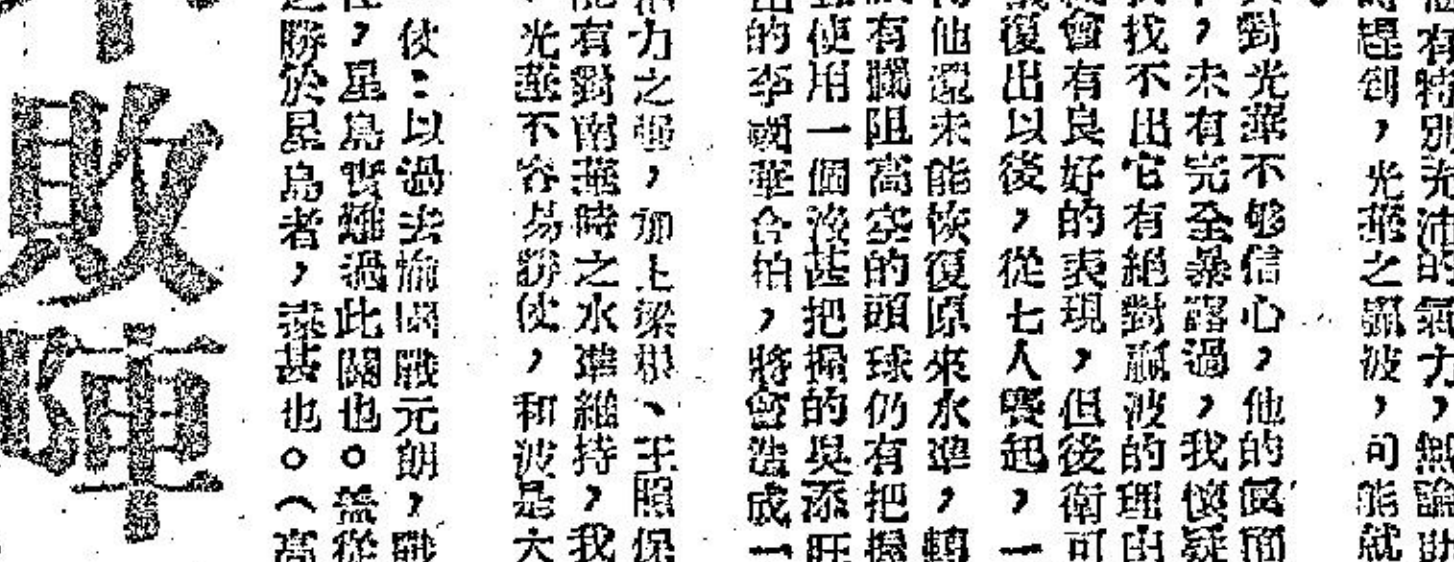 有特別充沛的氣力，無論
，光華之贏波，可能就
對光華不够信心，他的
，未有完全暴露過，我懷疑
找不出它有絕對贏波的理由
會有良好的表現，但後衛可
復出以後，從七人賽起，一
他還未能恢復原來水準，轉
有關阻高空的頭球仍有把握
使用一個後甚把握的吳添旺
的李國華合拍，將會造成一
力之強，加上梁根、王照保
有對南華時之水準維持，我
光華不容易勝仗，和波是大
仗：以過去愉園戰元朗，戰
，星島實難過此關也。蓋從
勝於星島者，遠甚也。（高
敗陣